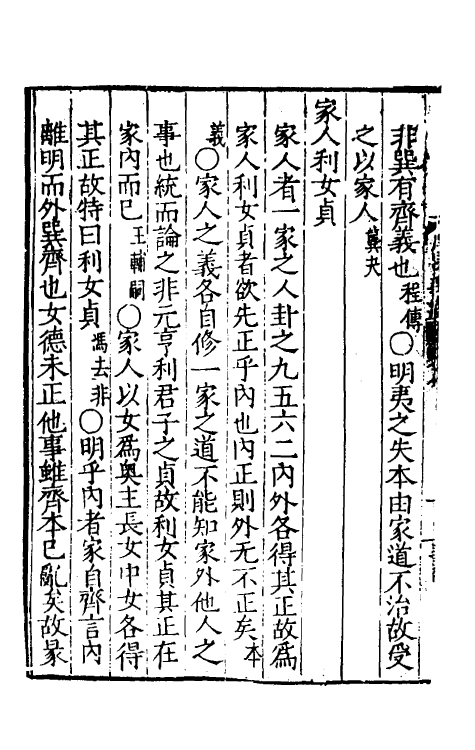 非巽有齊義也程傳○明夷之失本由家道不治故受
之以家人龔夬
家人利女貞
家人者一家之人卦之九五六二內外各得其正故為
家人利女貞者欲先正乎內也內正則外无不正矣本
義○家人之義各自修一家之道不能知家外他人之
事也統而論之非元亨利君子之貞故利女貞其正在
家內而已王輔嗣○家人以女為奧主長女中女各得
其正故特曰利女貞馮去非○明乎內者家自齊言內
離明而外巽齊也女德未正他事雖齊本已亂矣故彖